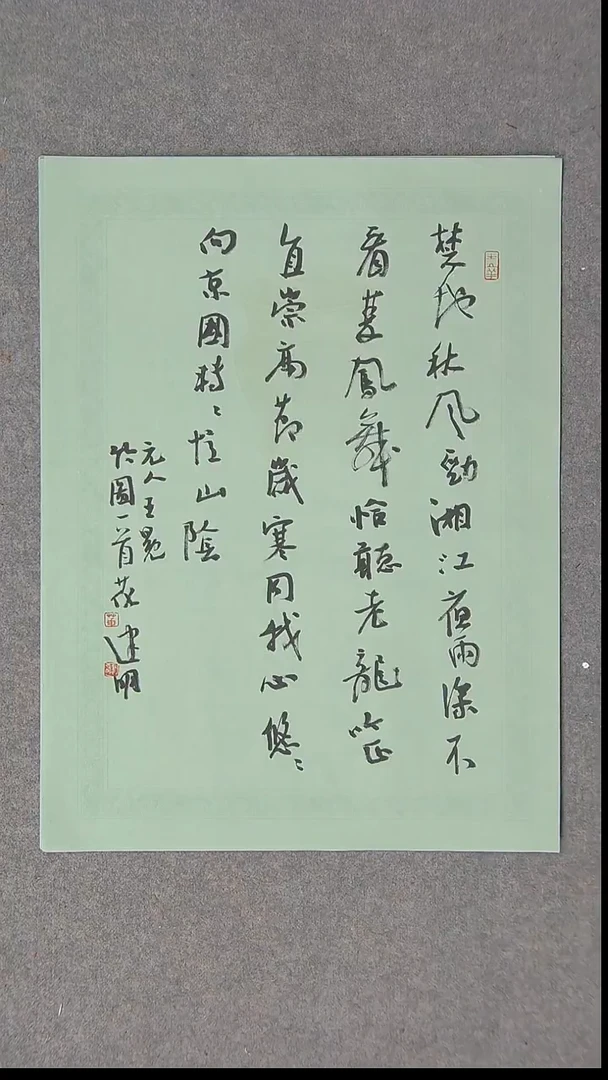 楚地秋風勁湘江夜雨深不
看鳳舞恰聽老龍吟
直崇高節歲寒同我心悠〻
向京國特〻憶山陰
元人王冕
竹圖一首建明